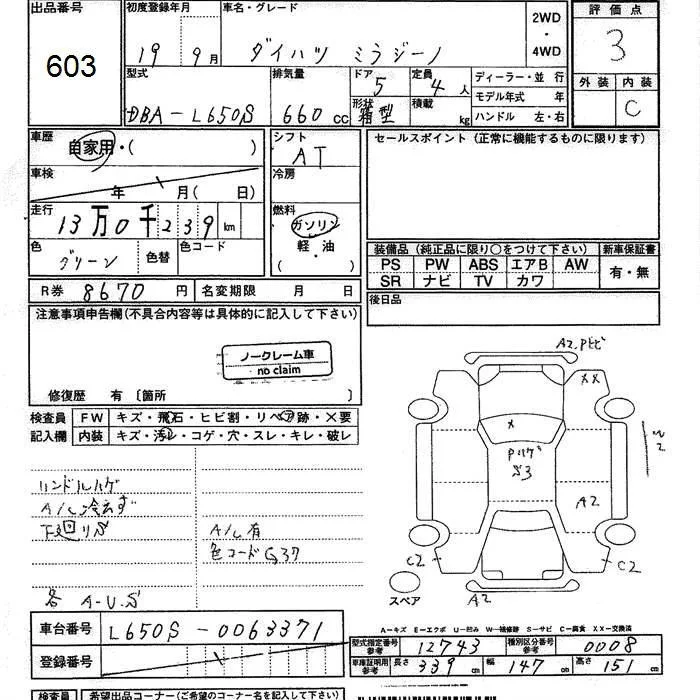 出品番号 初度登録年月 車名・グレード 2WD ・ 4WD 評価点
603 19 9月 ダイハツ ミラジーノ 3
型式 排気量 ドア 定員 ディーラー・並 行 外装 内装
DBA-L650S 660 cc 5 4人 モデル年式 年 C
形状 箱型 積載 kg ハンドル 左・右
車歴 自家用・( ) シフト AT セールスポイント(正常に機能するものに限ります)
車検 年 月( 日) 冷房
走行 13万0千239km 燃料 ガソリン
色 グリーン 色替 色コード 軽・油 ( )
装備品(純正品に限り○をつけて下さい) 新車保証書
PS PW ABS エアB AW 有・無
SR ナビ TV カワ
R券 8670円 名変期限 月 日 後日品
注意事項申告欄(不具合内容等は具体的に記入して下さい)
ノークレーム車
no claim
修復歴 有 〔箇所 〕
検査員 FW キズ・飛石・ヒビ割・リペア跡・×要
記入欄 内装 キズ・汚レ・コゲ・穴・スレ・キレ・破レ
ハンドルハゲ
A/C冷えず
下廻りS
A/C有
色コードG37
各 A-U.S
A2.Pヒビ
XX
X
W2
Pハゲ
S3
A2
C2
C2
A2
スペア
A-キズ E-エクボ U-凹み W-補修跡 S-サビ C-腐食 XX-交換済
車台番号 L650S-0063371
型式指定番号 参考 12743 種別区分番号 参考 0008
登録番号
車庫証明用 参考 長さ 339cm 幅 147cm 高さ 151cm
検査員 希望出品コーナー(ご希望のコーナー名を記入して下さい)